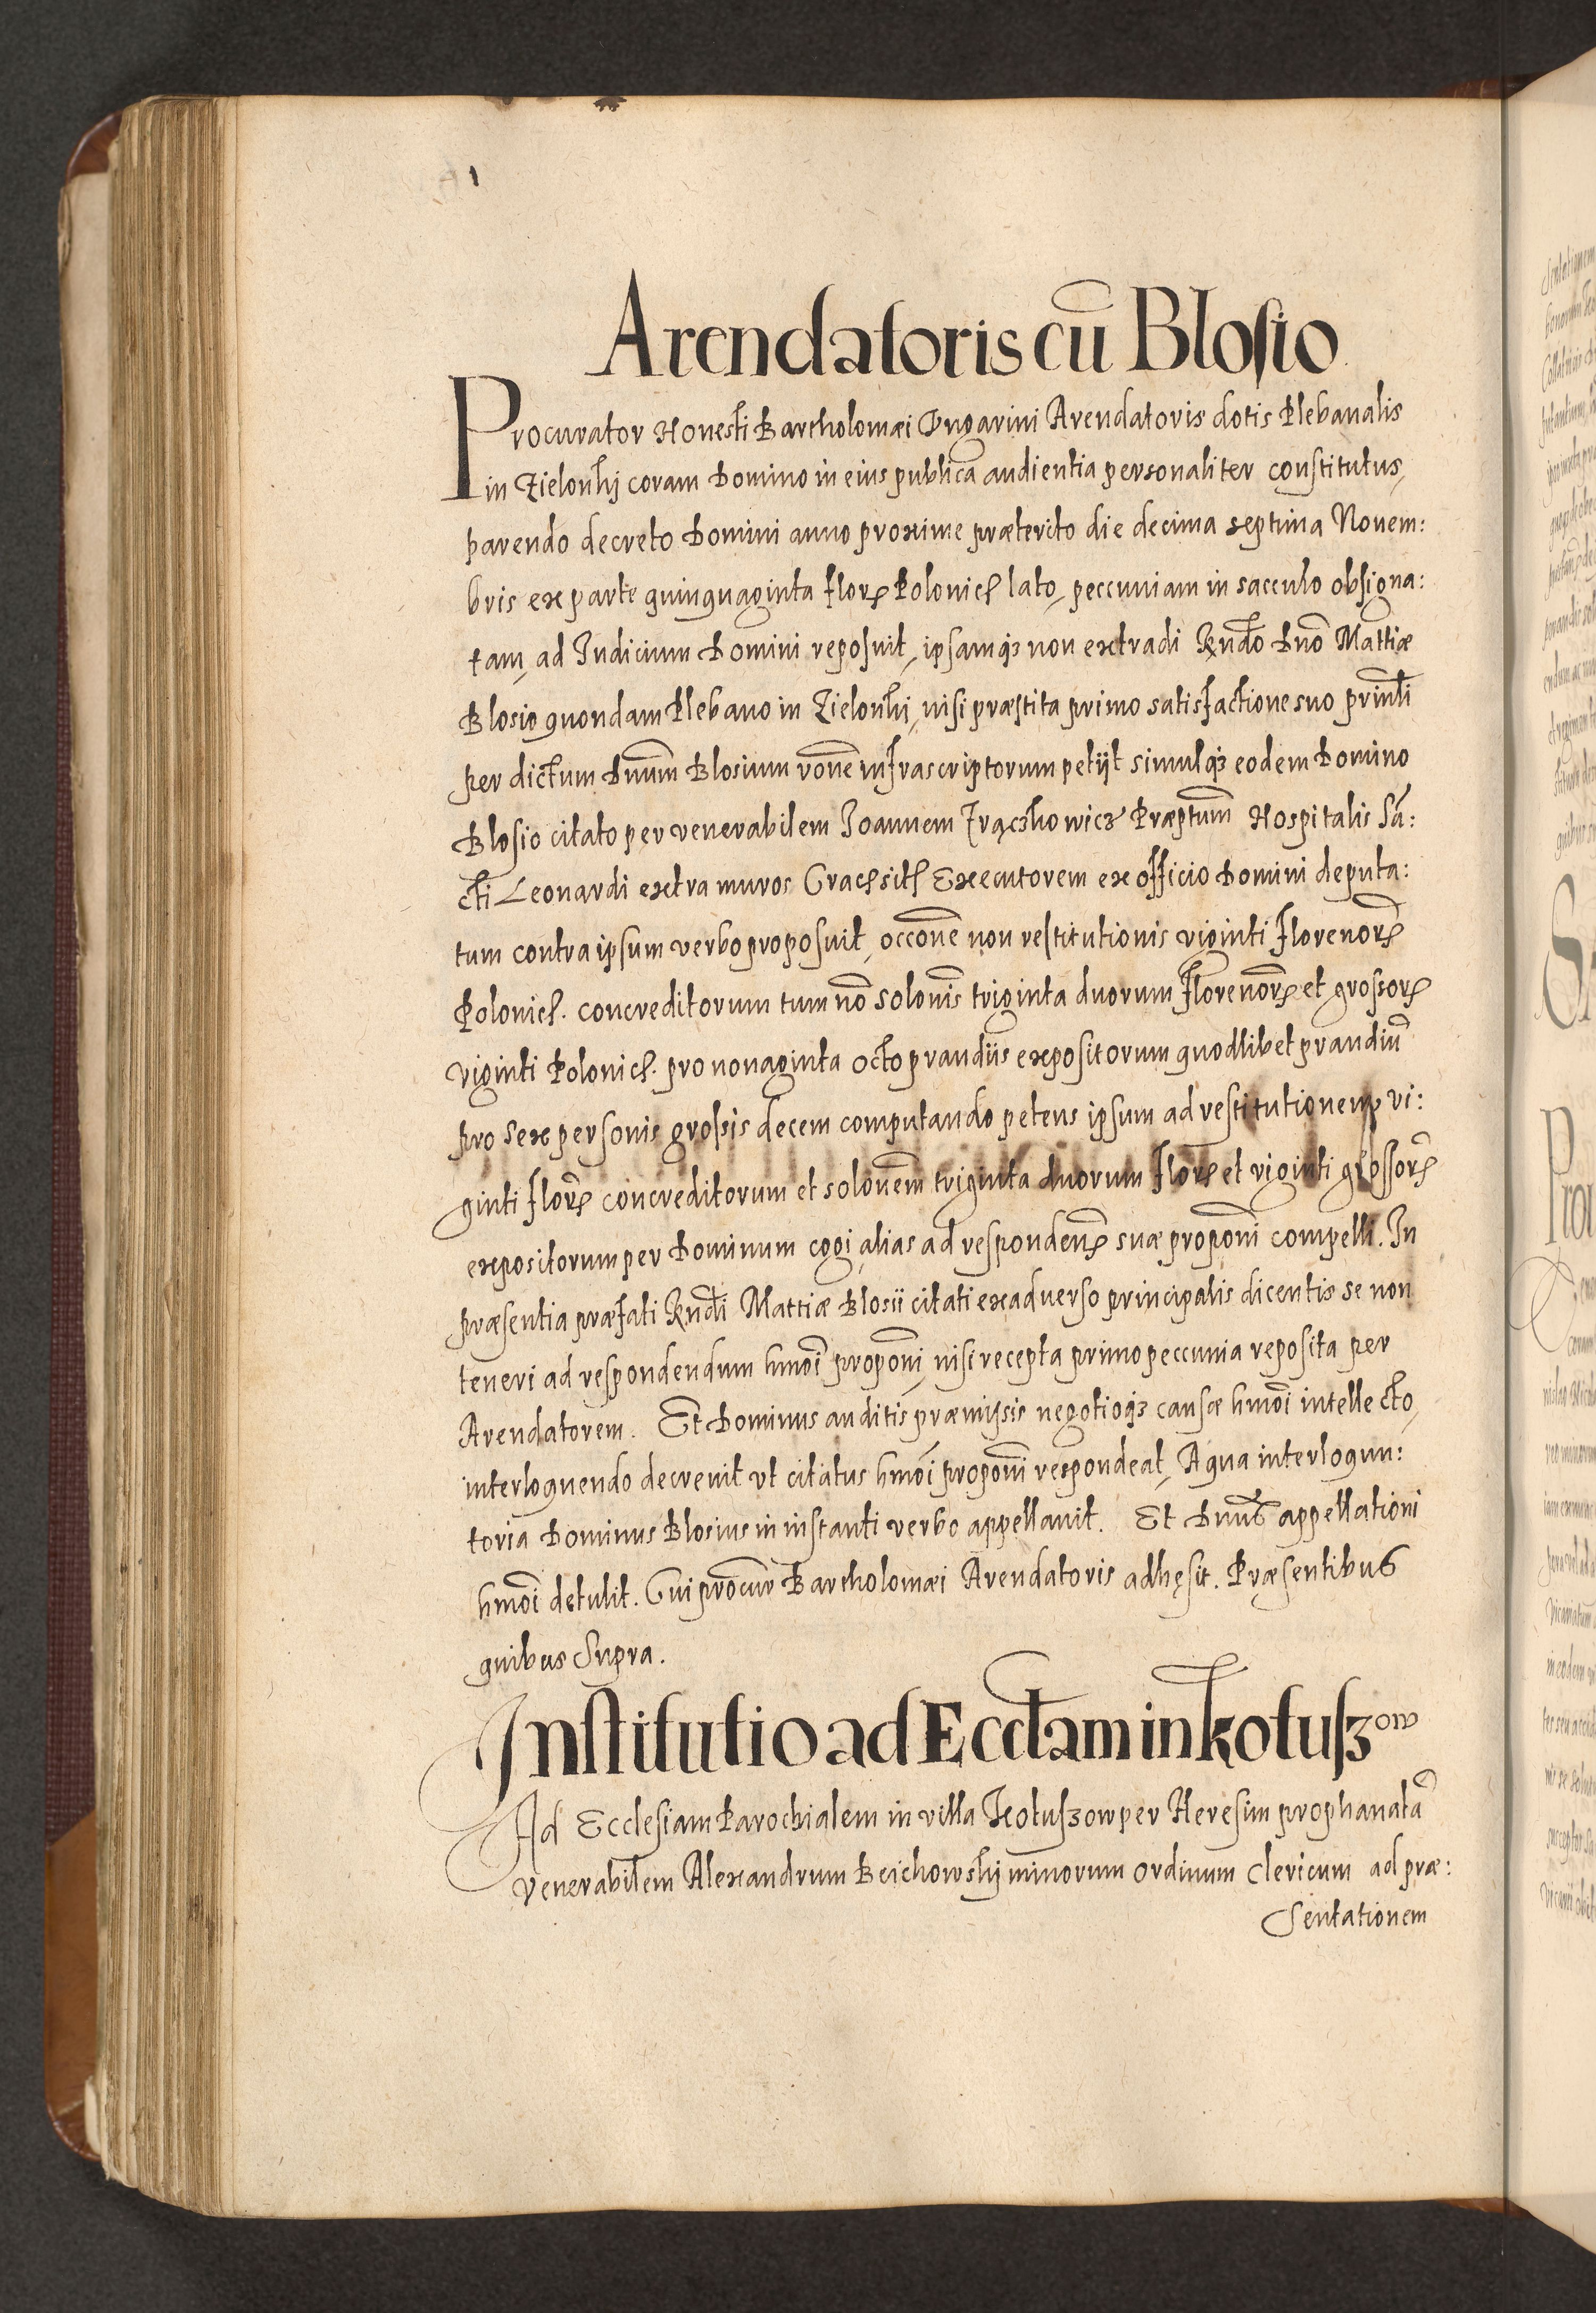 Arendatoris cũ Blosio
Procurator Honesti Bartholomæi Ungarini Arendatoris dotis Plebanalis
in Zielonki coram Domino in eius publica audientia personaliter constitutus,
parendo decreto Domini anno proxime præterito die decima septima Nouem:
bris ex parte quinquaginta flor. Polonic. lato, peccuniam in sacculo obsigna:
tam, ad Iudicium Domini reposuit, ipsamq3 non extradi Rndo Dno Mattiæ
Blosio quondam Plebano in Zielonki, nisi præstita primo satisfactione suo prinli
per dictum Dnum Blosium rone infrascriptorum petijt simulq3 eodem Domino
Blosio citato per venerabilem Joannem Frączkowicz Præptum Hospitalis Sã:
cti Leonardi extra muros Crac. sit. Executorem ex officio Domini deputa:
tum contra ipsum verbo proposuit, occone non restitutionis viginti Florenor.
Polonic. concreditorum tum no solonis triginta duorum Florenor. et grossor.
viginti Polonic. pro nonaginta octo prandiis expositorum quodlibet prandiũ
pro sex personis grossis decem computando petens ipsum ad restitutionem vi:
ginti flor. concreditorum et solonem triginta duorum Flor. et viginti grossor.
expositorum per Dominum cogi, alias ad responden. suæ proponi compelli. In
præsentia præfati Rndi Mattiæ Blosii citati ex aduerso principalis dicentis se non
teneri ad respondendum hmoi proponi, nisi recepta primo peccunia reposita per
Arendatorem. Et Dominus auditis præmissis negotioq3 causæ hmoi intellecto,
interloquendo decreuit vt citatus hmoi proponi respondeat, A qua interloqun:
toria Dominus Blosius in instanti verbo appellauit. Et Dnus appellationi
hmoi detulit. Cui procur Bartholomæi Arendatoris adhęsit. Præsentibus
quibus Supra.
Institutio ad Ecclam in Kotuszow
Ad Ecclesiam Parochialem in villa Kotuszow per Heresim prophanatã
venerabilem Alexandrum Bcichowski minorum ordinum Clericum ad præ:
sentationem